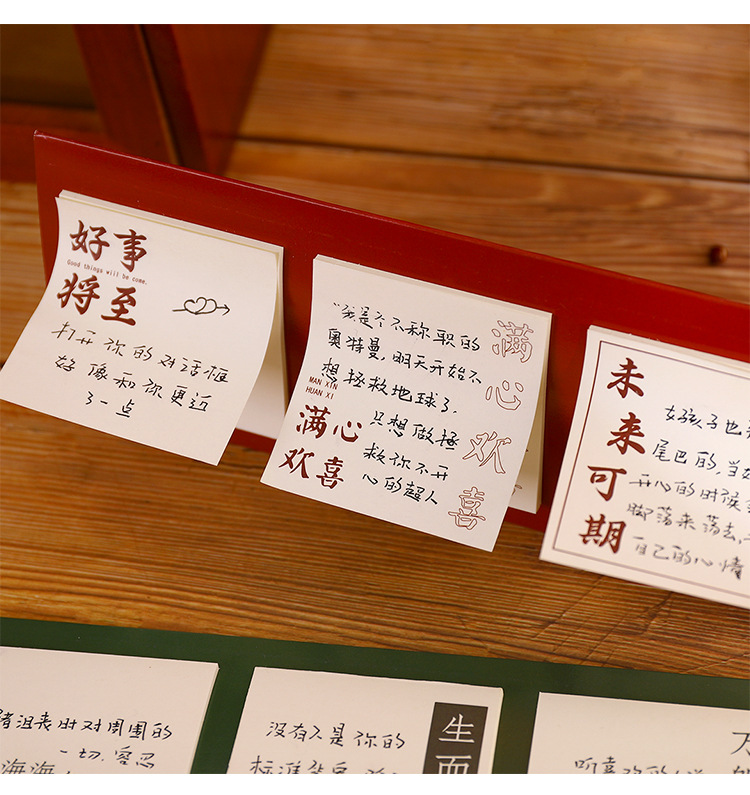 好事
Good things will be come.
将至
打开你的对话框
好像和你更近
了一点
"我是个不称职的
奥特曼，明天开始不
想拯救地球了，
只想做拯
救你不开
心的超人
MAN XIN
HUAN XI
满心
欢喜
满
心
欢
喜
未
来
可
期
女孩子也
尾巴的，当
开心的时候
脚荡来荡去，
自己的心情
对周围的
一切，容忍
海海
没有人是你的
标准答案
生
而
听喜欢的